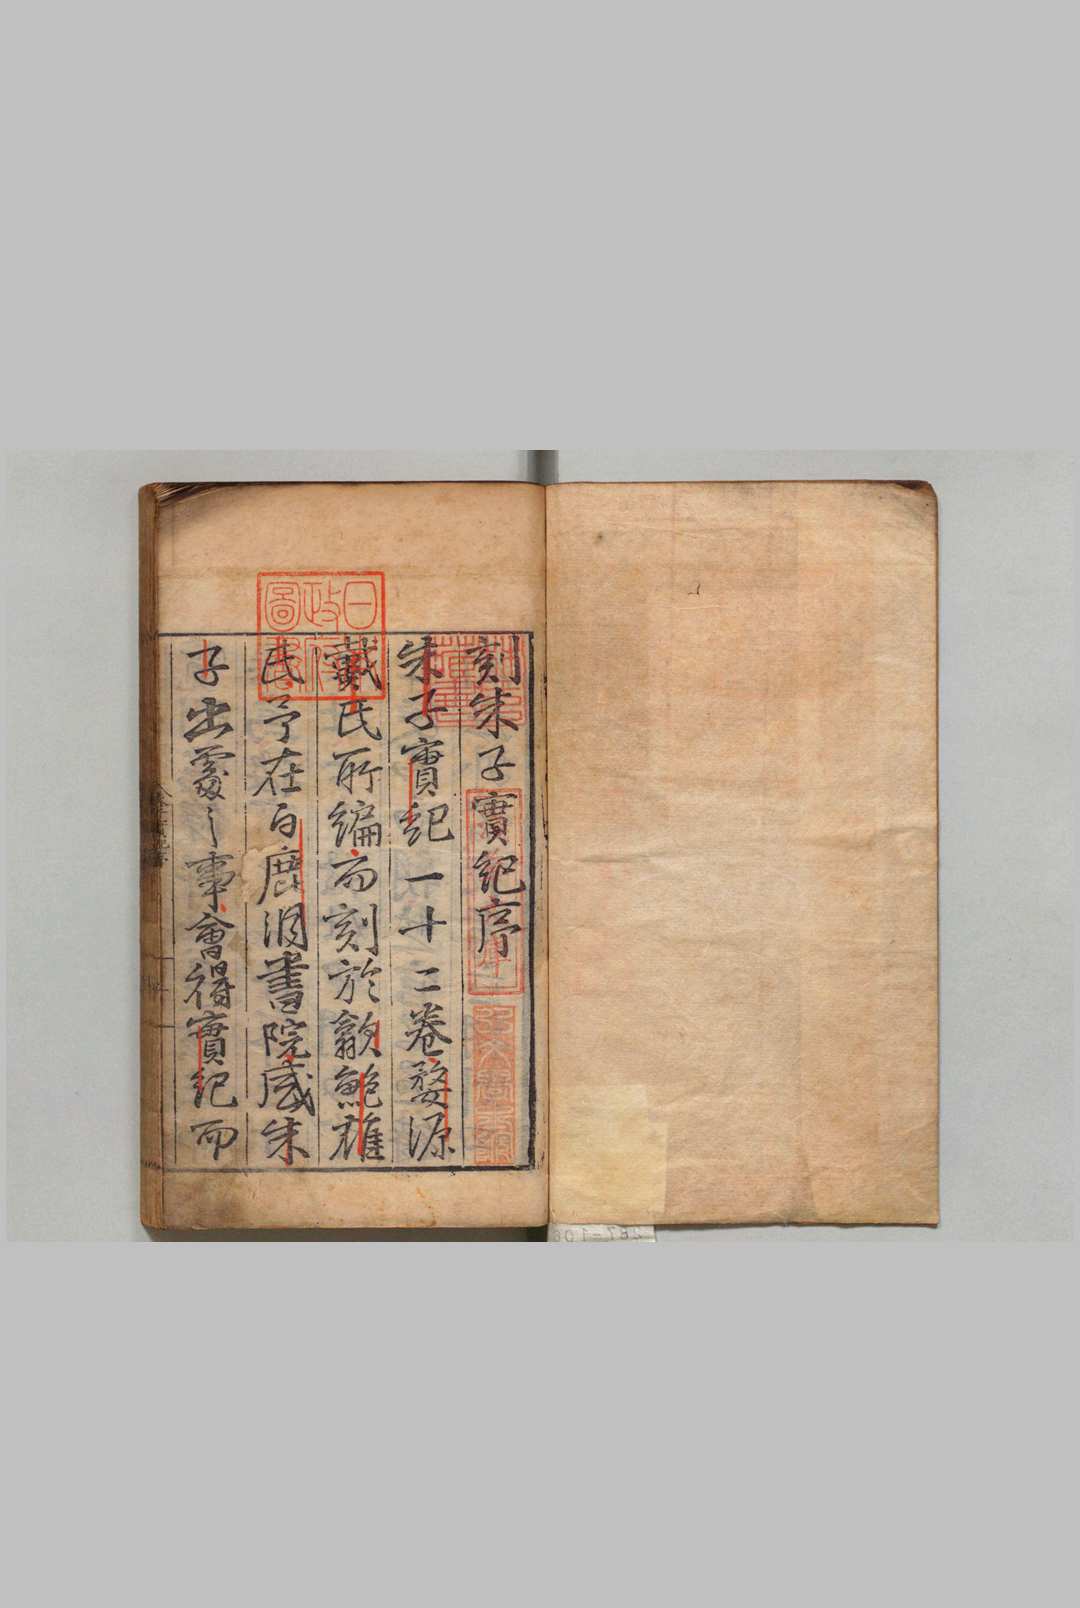 刻朱子實紀序
朱子實紀一十二卷婺源
戴氏所編而刻於歙鮑雄
氏予在白鹿洞書院感朱
子出處之事會得實紀而
日
政府
圖書